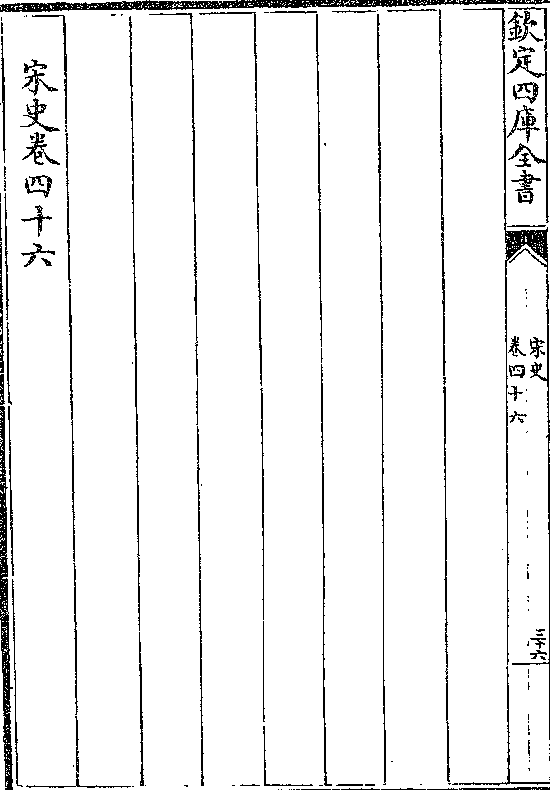 欽定四庫全書
宋史
卷四十六
三十六
宋史卷四十六